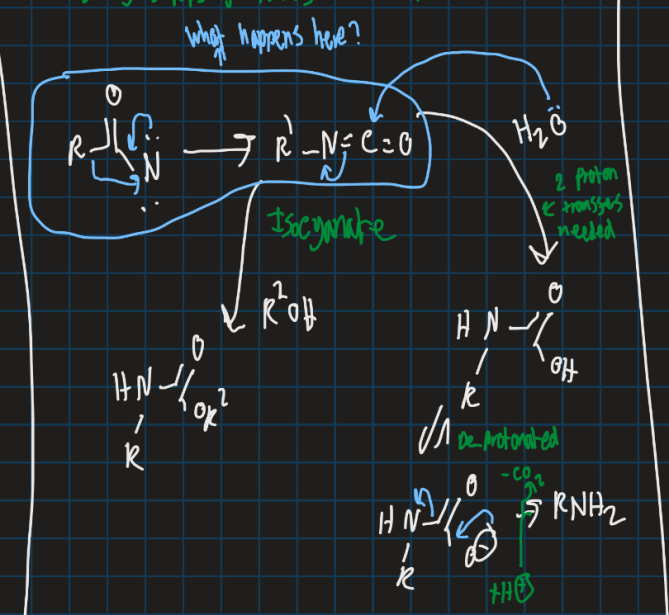 What happens here?
O
R N
R¹ -N=C=O
H₂Ö
2 proton
needed
Isocyanate
R²OH
O
HN
OR²
R
O
H N
OH
R
Deprotonated
-CO₂
O
HN
O⊖
RNH₂
R
+H⊕